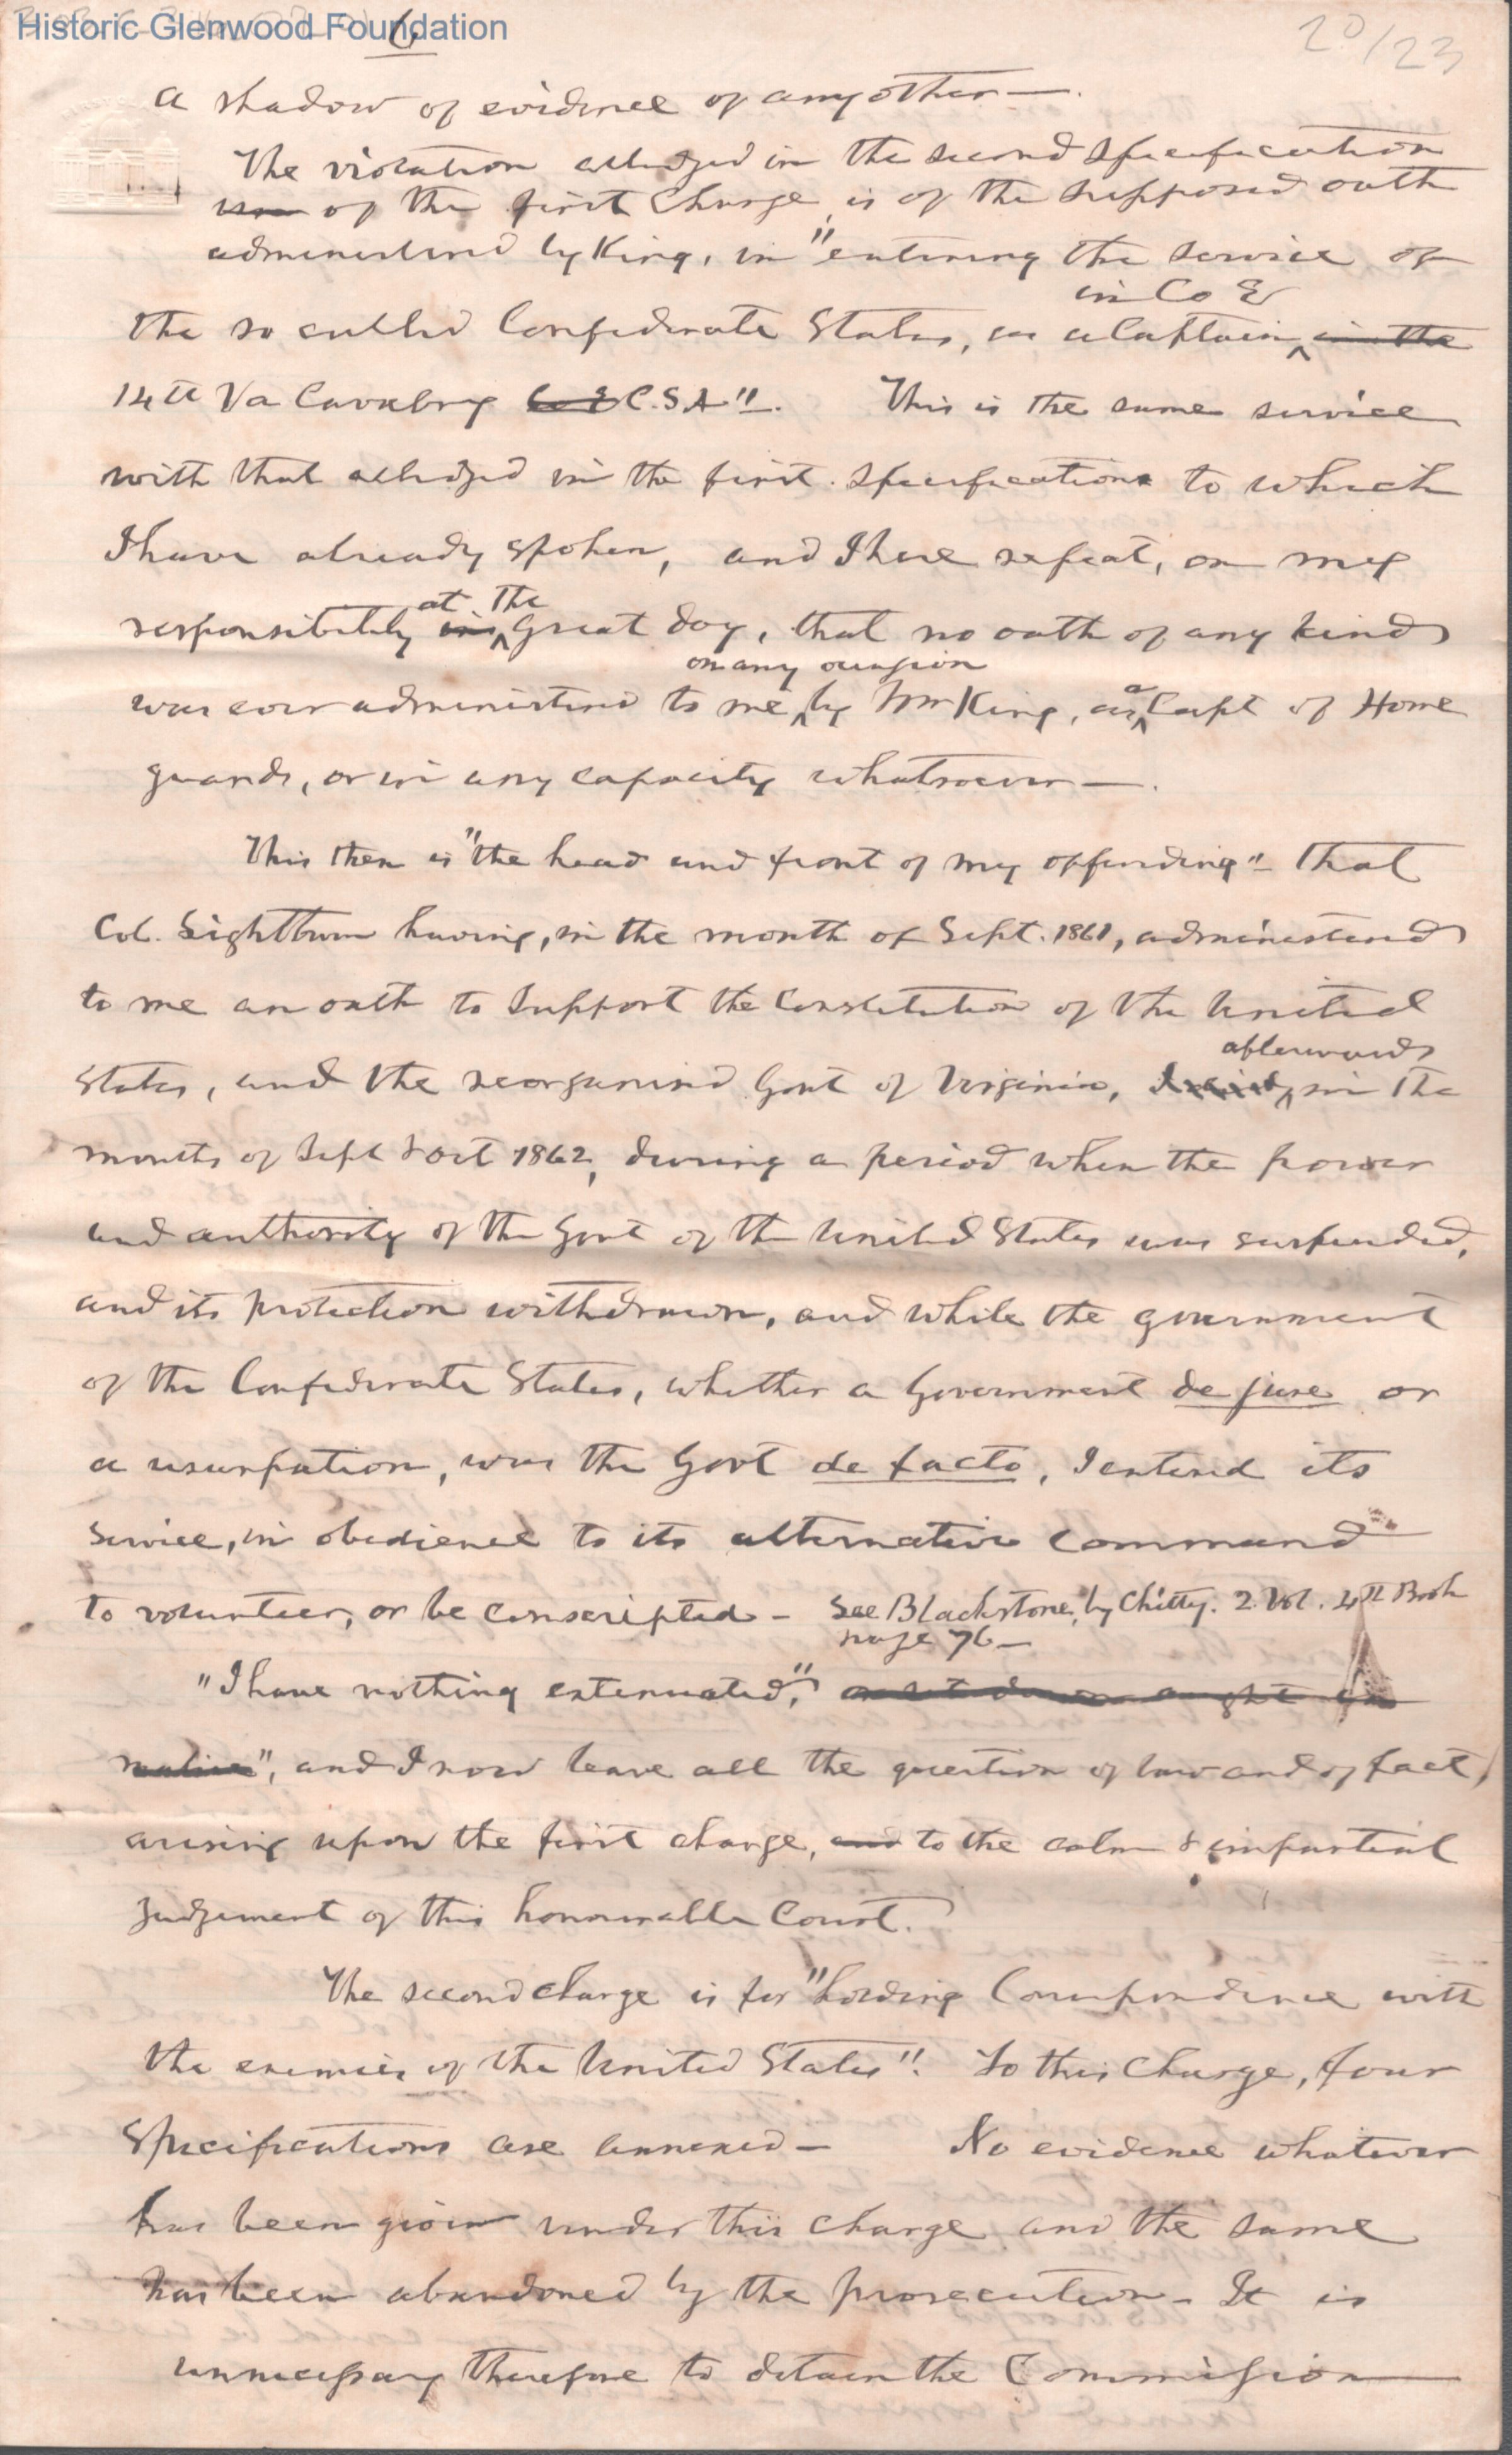 Historic Glenwood Foundation
6
20/23
a shadow of evidence of any other —.
The violation alledged in the second specification
of the first Charge, is of the supposed oath
administered by King, in "entering the service of
in Co E
the so called Confederate States, as a Captain ^ in the
14th Va Cavalry Co E C.S.A". This is the same service
with that alledged in the first specification to which
I have already spoken, and I here repeat, on my
at the
responsibility in ^ Great day, that no oath of any kind
on any occasion
was ever administered to me ^ by Mr King, as ^ a Capt of Home
guards, or in any capacity whatsoever —.
This then is "the head and front of my offending" - that
Col. Lightburn having, in the month of Sept. 1861, administered
to me an oath to support the Constitution of the United
afterwards
States, and the reorganised Govt of Virginia, I ^ in the
months of Sept & Oct 1862, during a period when the power
and authority of the Govt of the United States was suspended,
and its protection withdrawn, and while the government
of the Confederate States, whether a Government de jure or
a usurpation, was the Govt de facto, I entered its
service, in obedience to its alternative command
to volunteer, or be conscripted - See Blackstone, by Chitty. 2 Vol. 4th Book
page 76 —
"I have nothing extenuated," or set down aught in
malice", and I now leave all the question of law and of fact,
arising upon the first charge, and to the calm & impartial
judgement of this honourable Court.
The second charge is for "holding Correspondence with
the enemies of the United States". To this Charge, four
Specifications are annexed — No evidence whatever
has been given under this charge and the same
has been abandoned by the prosecution - It is
unnecessary therefore to detain the Commission